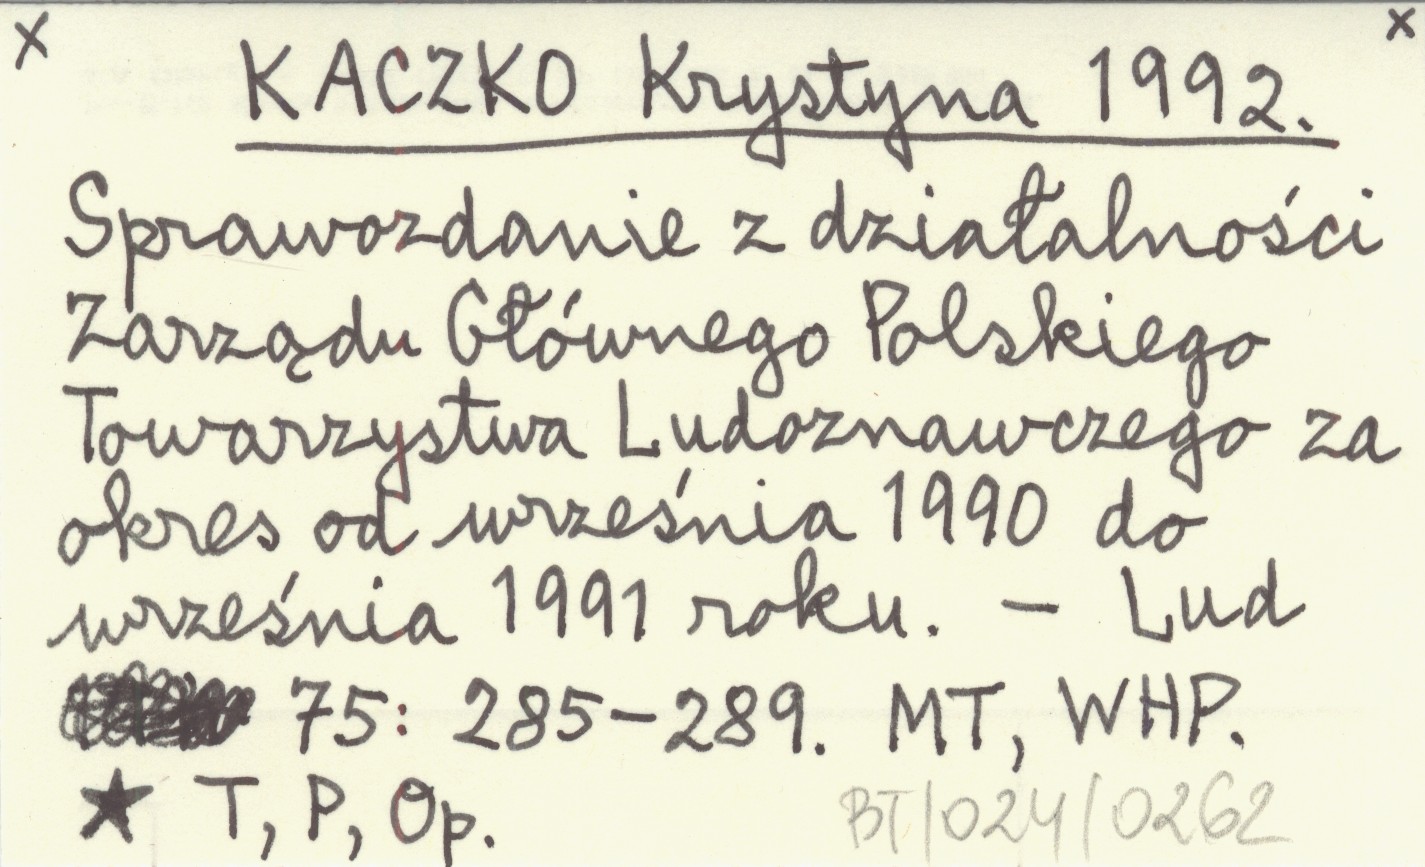 x x
KACZKO Krystyna 1992.
Sprawozdanie z działalności
Zarządu Głównego Polskiego
Towarzystwa Ludoznawczego za
okres od września 1990 do
września 1991 roku. – Lud
75: 285–289. MT, WHP.
★ T, P, Op.
BT/024/0262